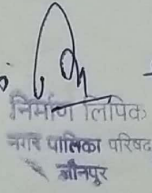 निर्माण लिपिक
नगर पालिका परिषद
जौनपुर